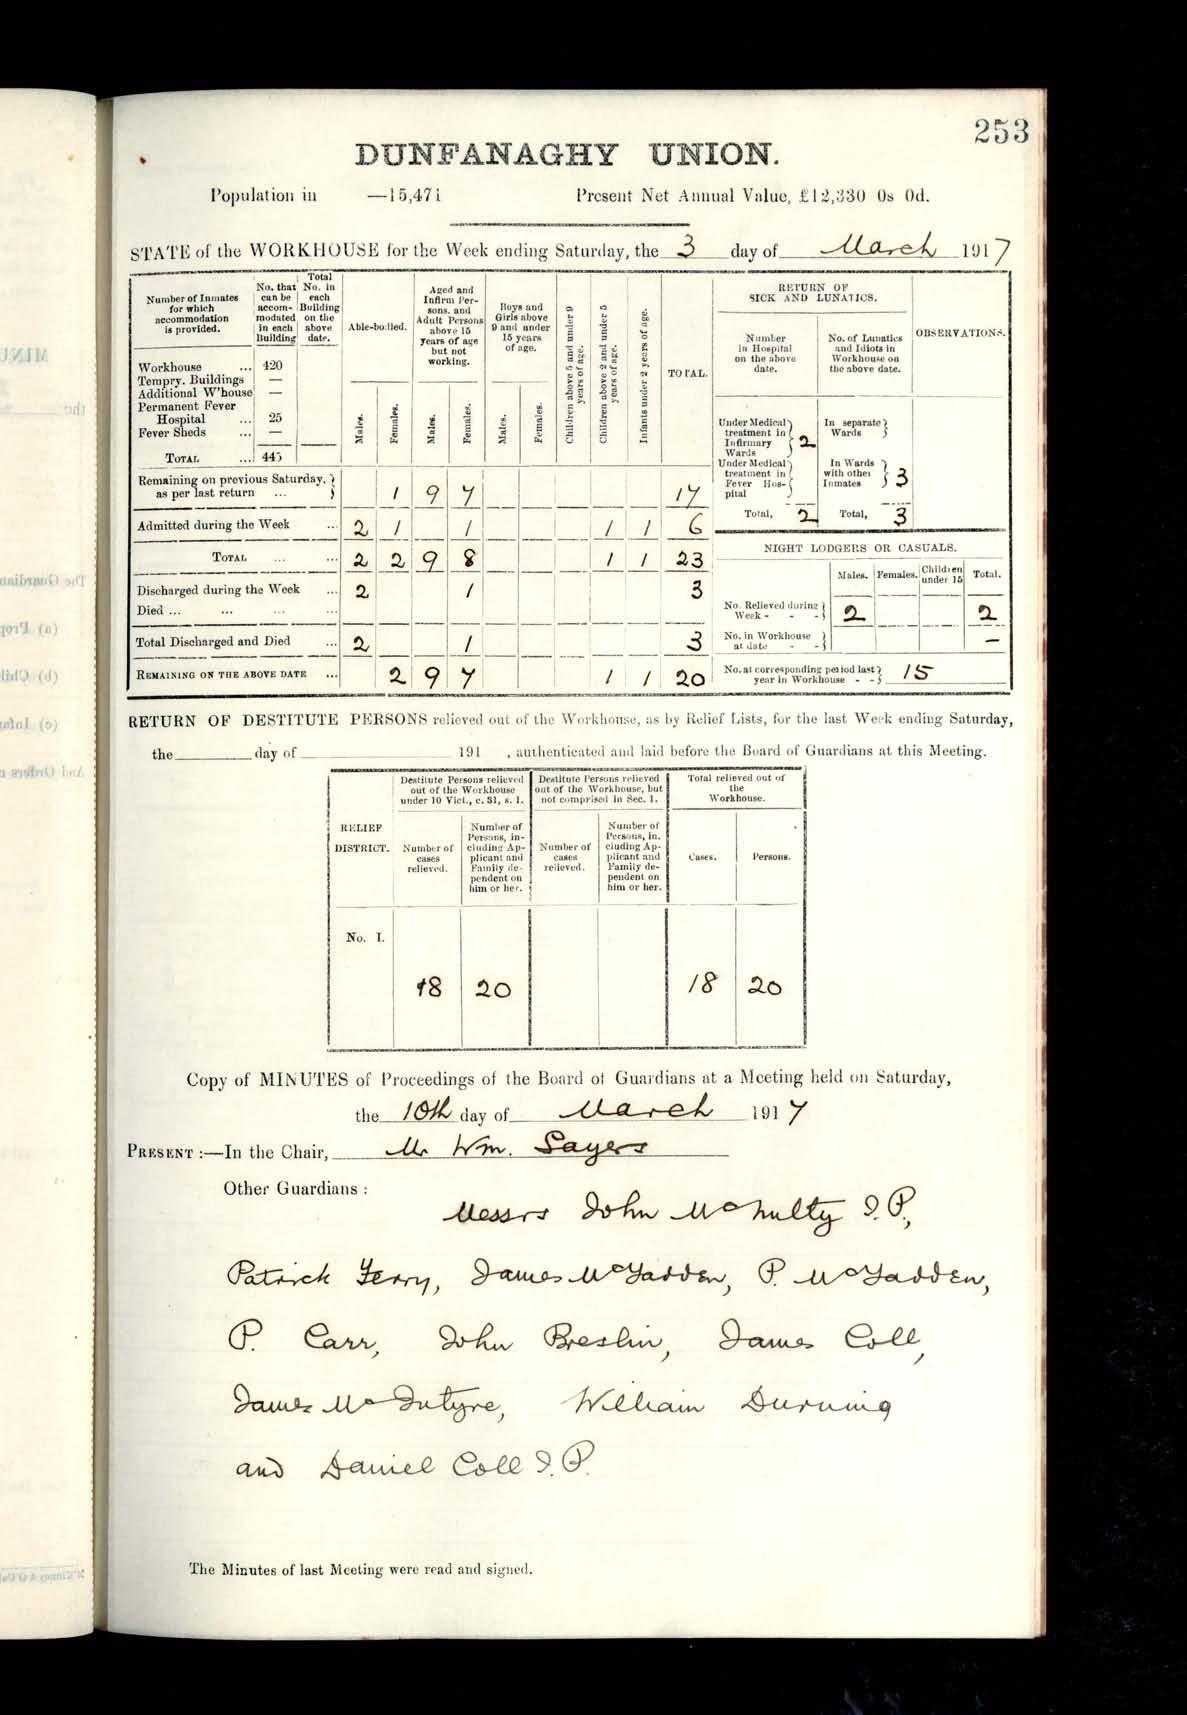 253
DUNFANAGHY UNION.
Population in —15,471 Present Net Annual Value, £12,330 0s 0d.
STATE of the WORKHOUSE for the Week ending Saturday, the 3 day of March 1917
Number of Inmates for which accommodation is provided.
No. that can be accommodated in each Building
Total No. in each Building on the above date.
Able-bodied.
Aged and Infirm Persons, and Adult Persons above 15 years of age but not working.
Boys and Girls above 9 and under 15 years of age.
Children above 5 and under 9 years of age.
Children above 2 and under 5 years of age.
Infants under 2 years of age.
TOTAL.
Males. Females. Males. Females. Males. Females.
Workhouse ... 420
Tempry. Buildings —
Additional W'house —
Permanent Fever
Hospital ... 25
Fever Sheds ... —
TOTAL ... 445
Remaining on previous Saturday, as per last return ... 1 9 7 17
Admitted during the Week ... 2 1 1 1 1 6
TOTAL ... ... 2 2 9 8 1 1 23
Discharged during the Week ... 2 1 3
Died ... ... ... ...
Total Discharged and Died ... 2 1 3
REMAINING ON THE ABOVE DATE ... 2 9 7 1 1 20
RETURN OF SICK AND LUNATICS.
Number in Hospital on the above date.
No. of Lunatics and Idiots in Workhouse on the above date.
OBSERVATIONS.
Under Medical treatment in Infirmary Wards 2
In separate Wards
Under Medical treatment in Fever Hospital
In Wards with other Inmates 3
Total, 2 Total, 3
NIGHT LODGERS OR CASUALS.
Males. Females. Children under 15 Total.
No. Relieved during Week - - - 2 2
No. in Workhouse at date - - —
No. at corresponding period last year in Workhouse - - 15
RETURN OF DESTITUTE PERSONS relieved out of the Workhouse, as by Relief Lists, for the last Week ending Saturday,
the day of 191 , authenticated and laid before the Board of Guardians at this Meeting.
RELIEF DISTRICT.
Destitute Persons relieved out of the Workhouse under 10 Vict., c. 31, s. 1.
Destitute Persons relieved out of the Workhouse, but not comprised in Sec. 1.
Total relieved out of the Workhouse.
Number of cases relieved.
Number of Persons, including Applicant and Family dependent on him or her.
Number of cases relieved.
Number of Persons, including Applicant and Family dependent on him or her.
Cases. Persons.
No. I.
18 20 18 20
Copy of MINUTES of Proceedings of the Board of Guardians at a Meeting held on Saturday,
the 10th day of March 1917
PRESENT :—In the Chair, Mr Wm. Sayers
Other Guardians :
Messrs John McNulty J.P.,
Patrick Ferry, James McFadden, P. McFadden,
P. Carr, John Breslin, James Coll,
James McIntyre, William Durning
and Daniel Coll J.P.
The Minutes of last Meeting were read and signed.